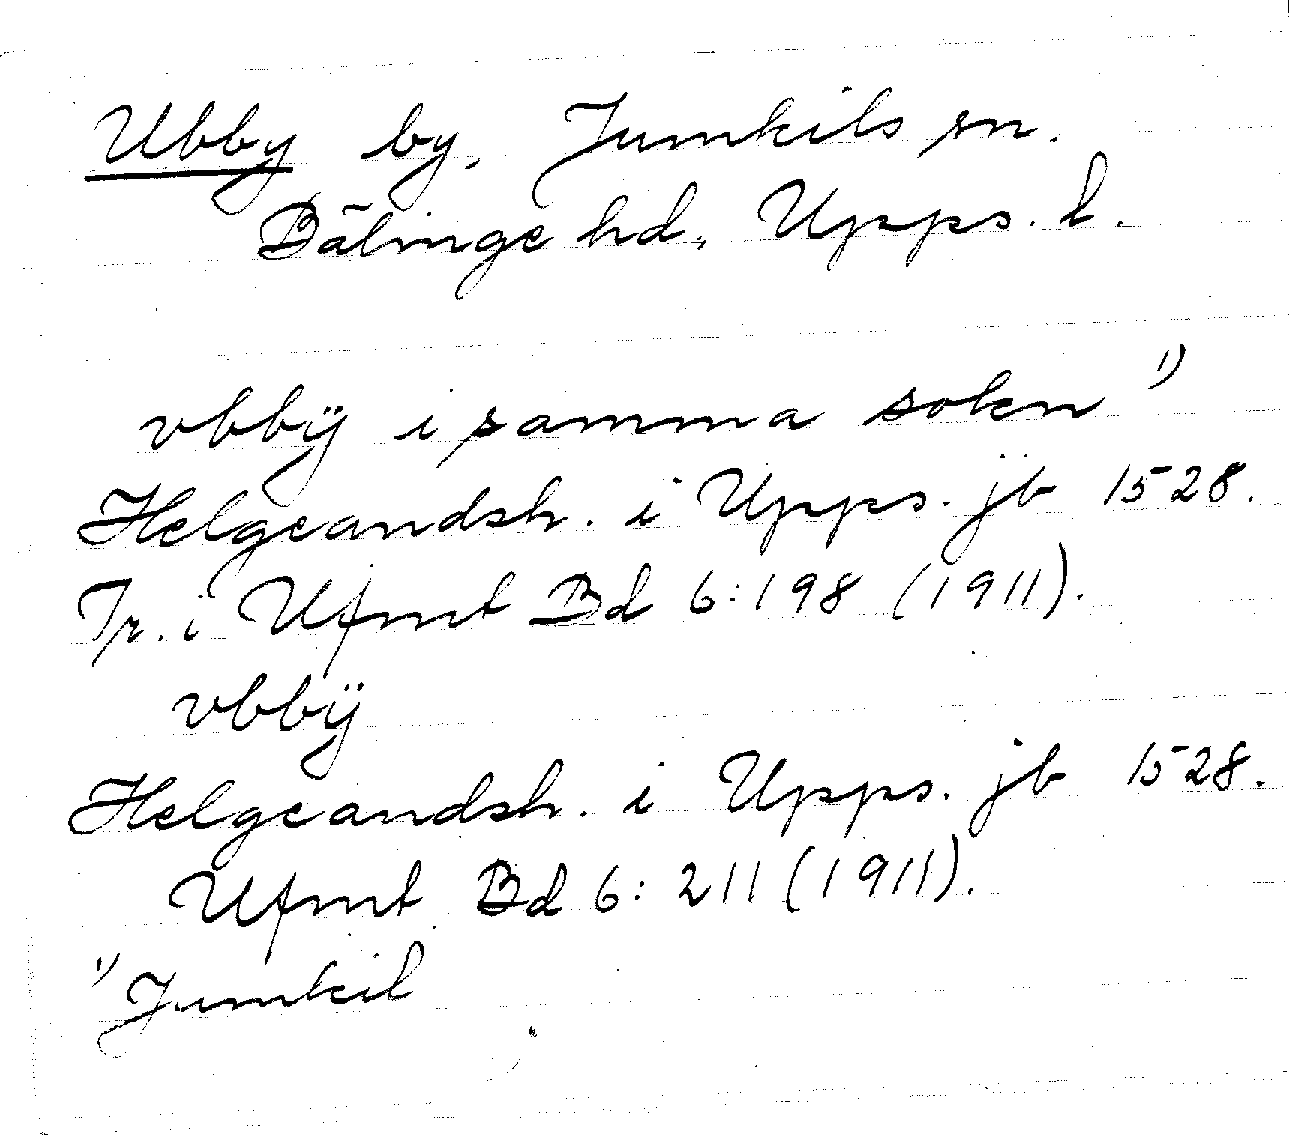 Ubby by, Jumkils sn.
Bälinge hd, Upps. l.
vbbÿ i samma soken 1)
Helgeandsh. i Upps. jb 1528.
Tr. i Ufmt Bd 6:198 (1911).
vbbÿ
Helgeandsh. i Upps. jb 1528.
Ufmt Bd 6: 211 (1911).
1) Jumkil